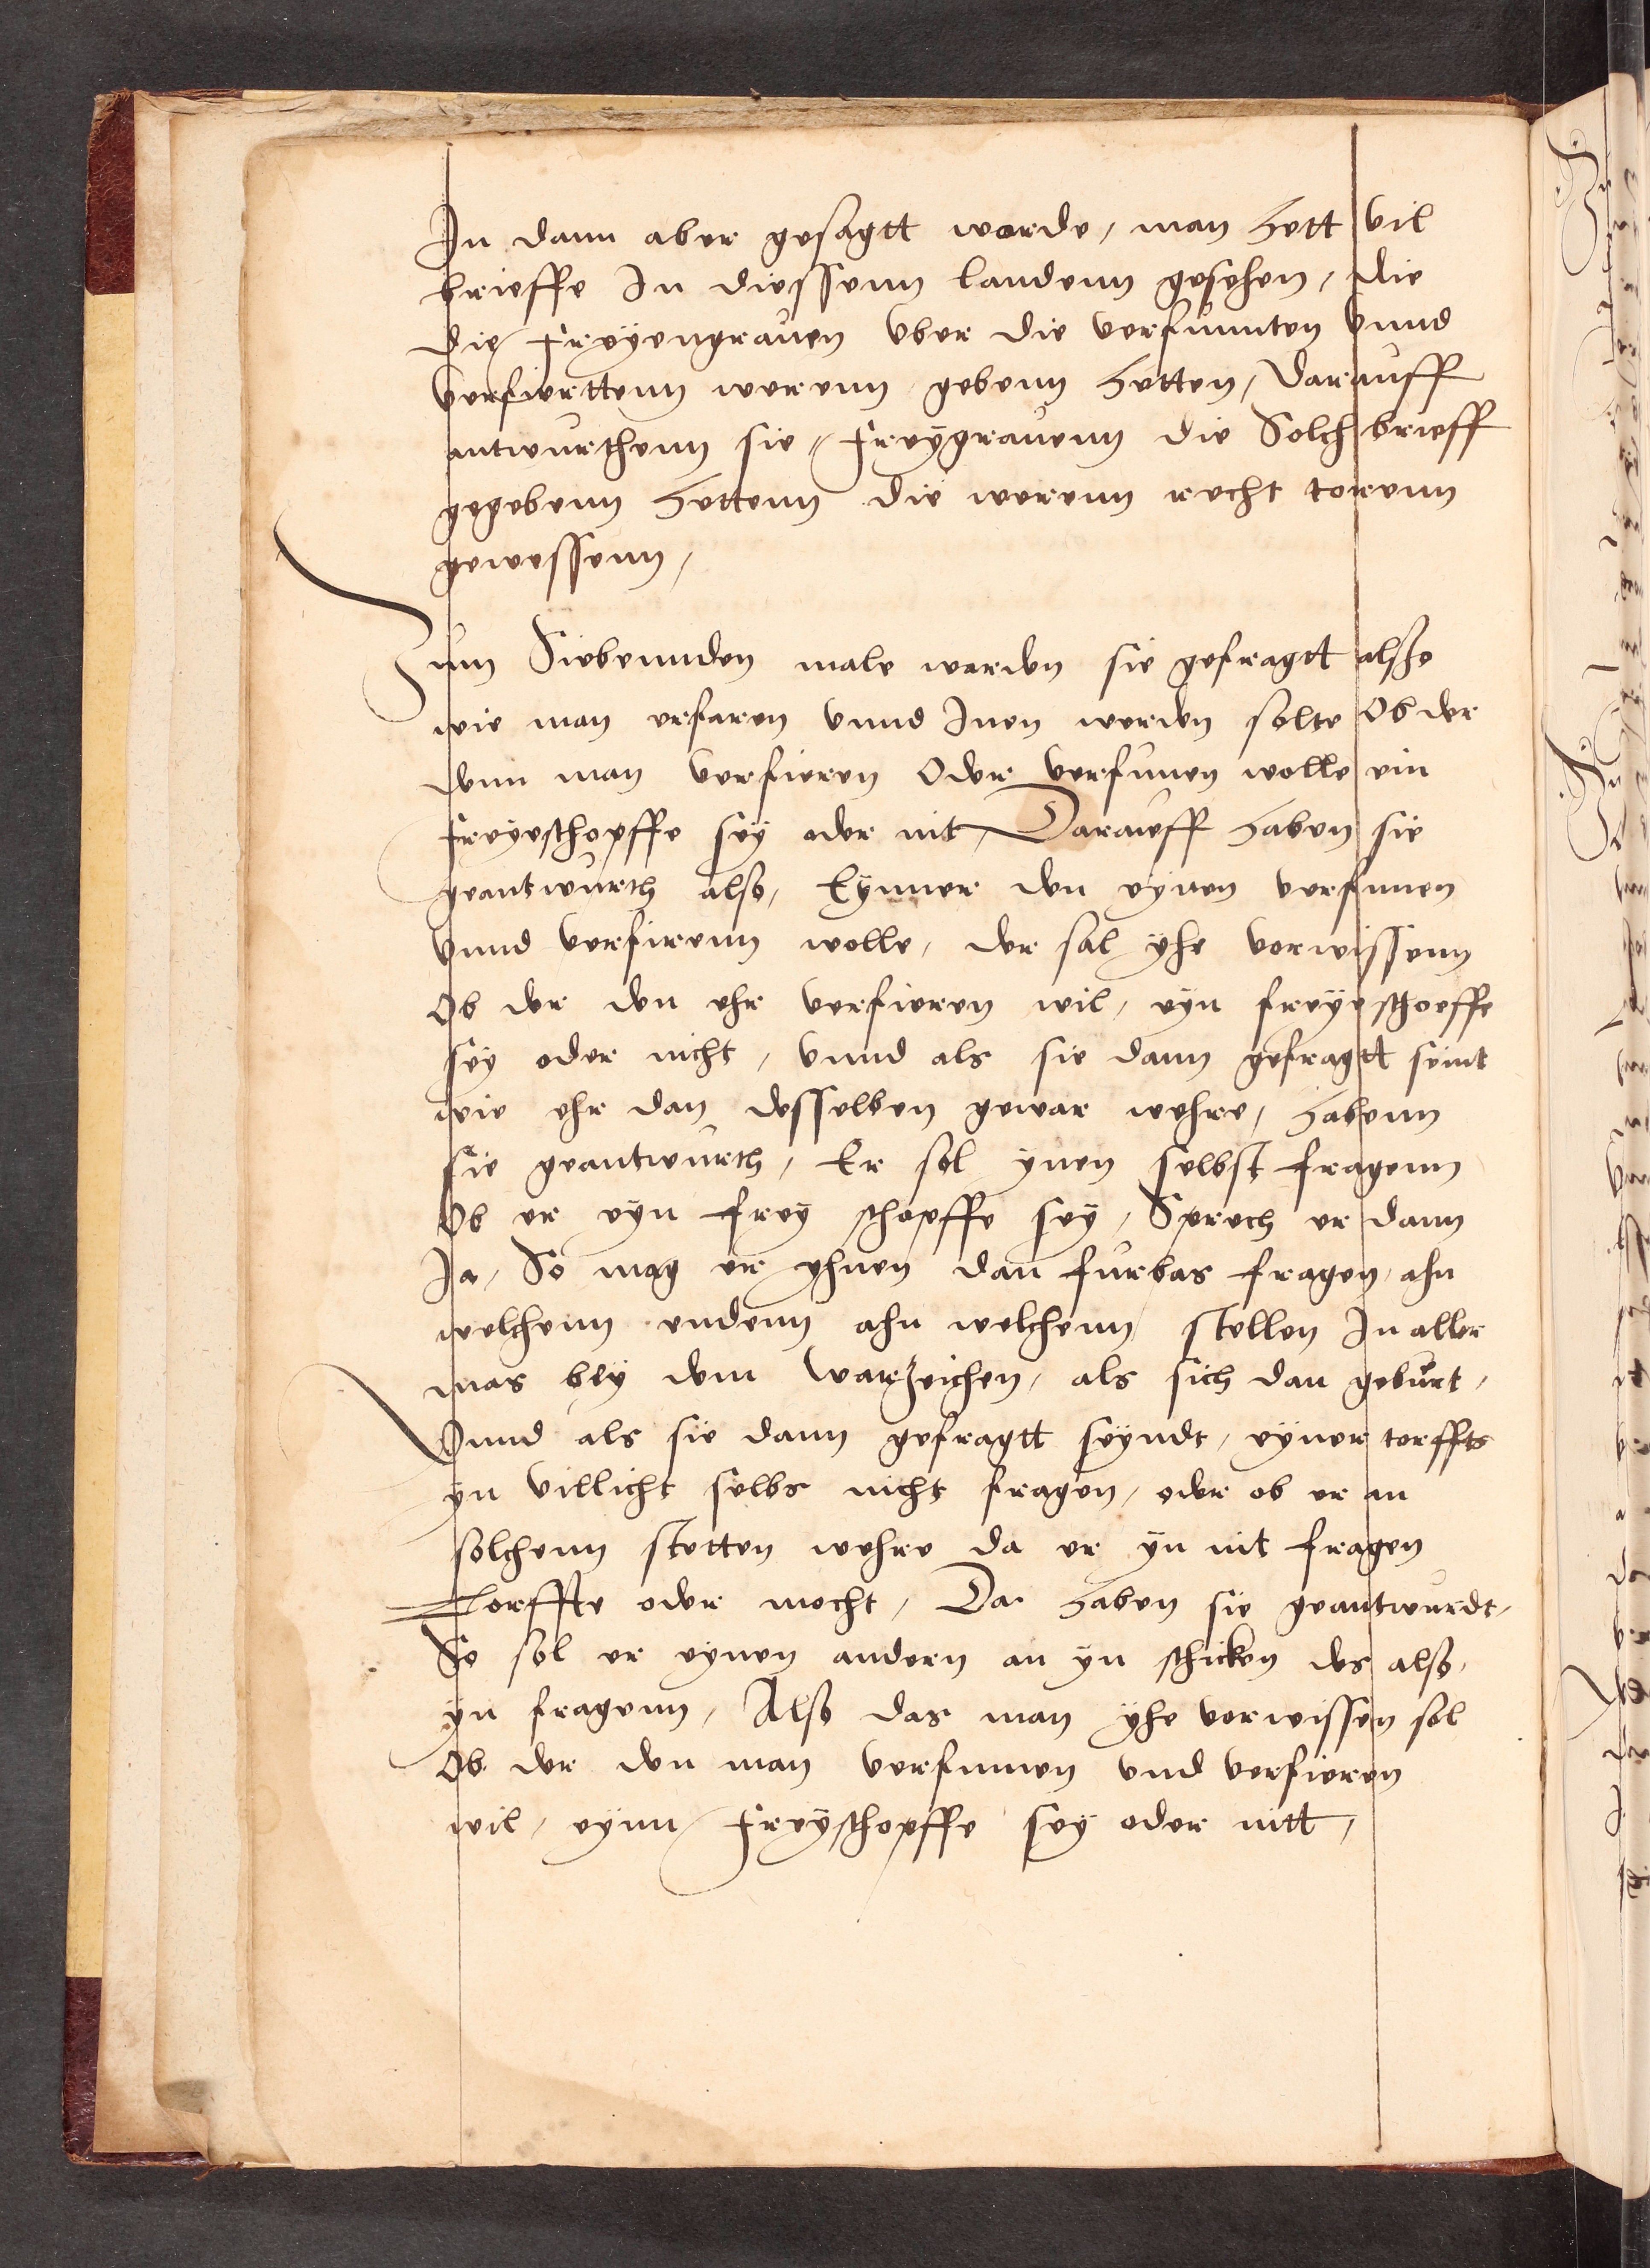 In dann aber gesagtt worde, man hett vil
brieffe In diessenn landenn gesehen, die
die freyengraven vber die verfumten vnnd
verfierttenn werenn gebenn hetten, darauff
antwurthenn sie, freygravenn die Solch brieff
gegebenn hettenn die werenn recht torenn
gewessenn,
Zum Siebennden male werden sie gefragtt alsße
wie man erfaren vnnd Inen werden solte Ob der
denn man verfieren Oder verfumen wolle ein
freyeschopffe sey oder nit, Darauff haben sie
geantwurth also, Eynner den eynen verfumen
vnnd verfirenn wolle, der sal yhe vorwissenn
Ob der den ehr verfieren wil, eyn freye schoeffe
sey oder nicht, vnnd als sie dann gefragtt seint
wie ehr dan desselben gewar wehre, habenn
sie geantwurth, Er sol ynen selbst fragenn
Ob er eyn frey schopffe sey, Sprech er dann
Ja, So mag er yhnen dan furbas fragen, ahn
welchenn endenn ahn welchenn stellen In aller
mas bey dem warzeichen, als sich dan geburt,
Vnnd als sie dann gefragtt seyndt, eyner torffts
yn villicht selbs nicht fragen, oder ob er an
solchenn stetten wehre da er yn nit fragen
Torffte oder mocht, Da haben sie geantwurdt,
So sol er eynen andern an yn schicken des also,
yn fragenn, Also das man yhe vorwissen sol
Ob der den man verfumen vnd verfieren
wil, eynn freyschopffe sey oder nitt,